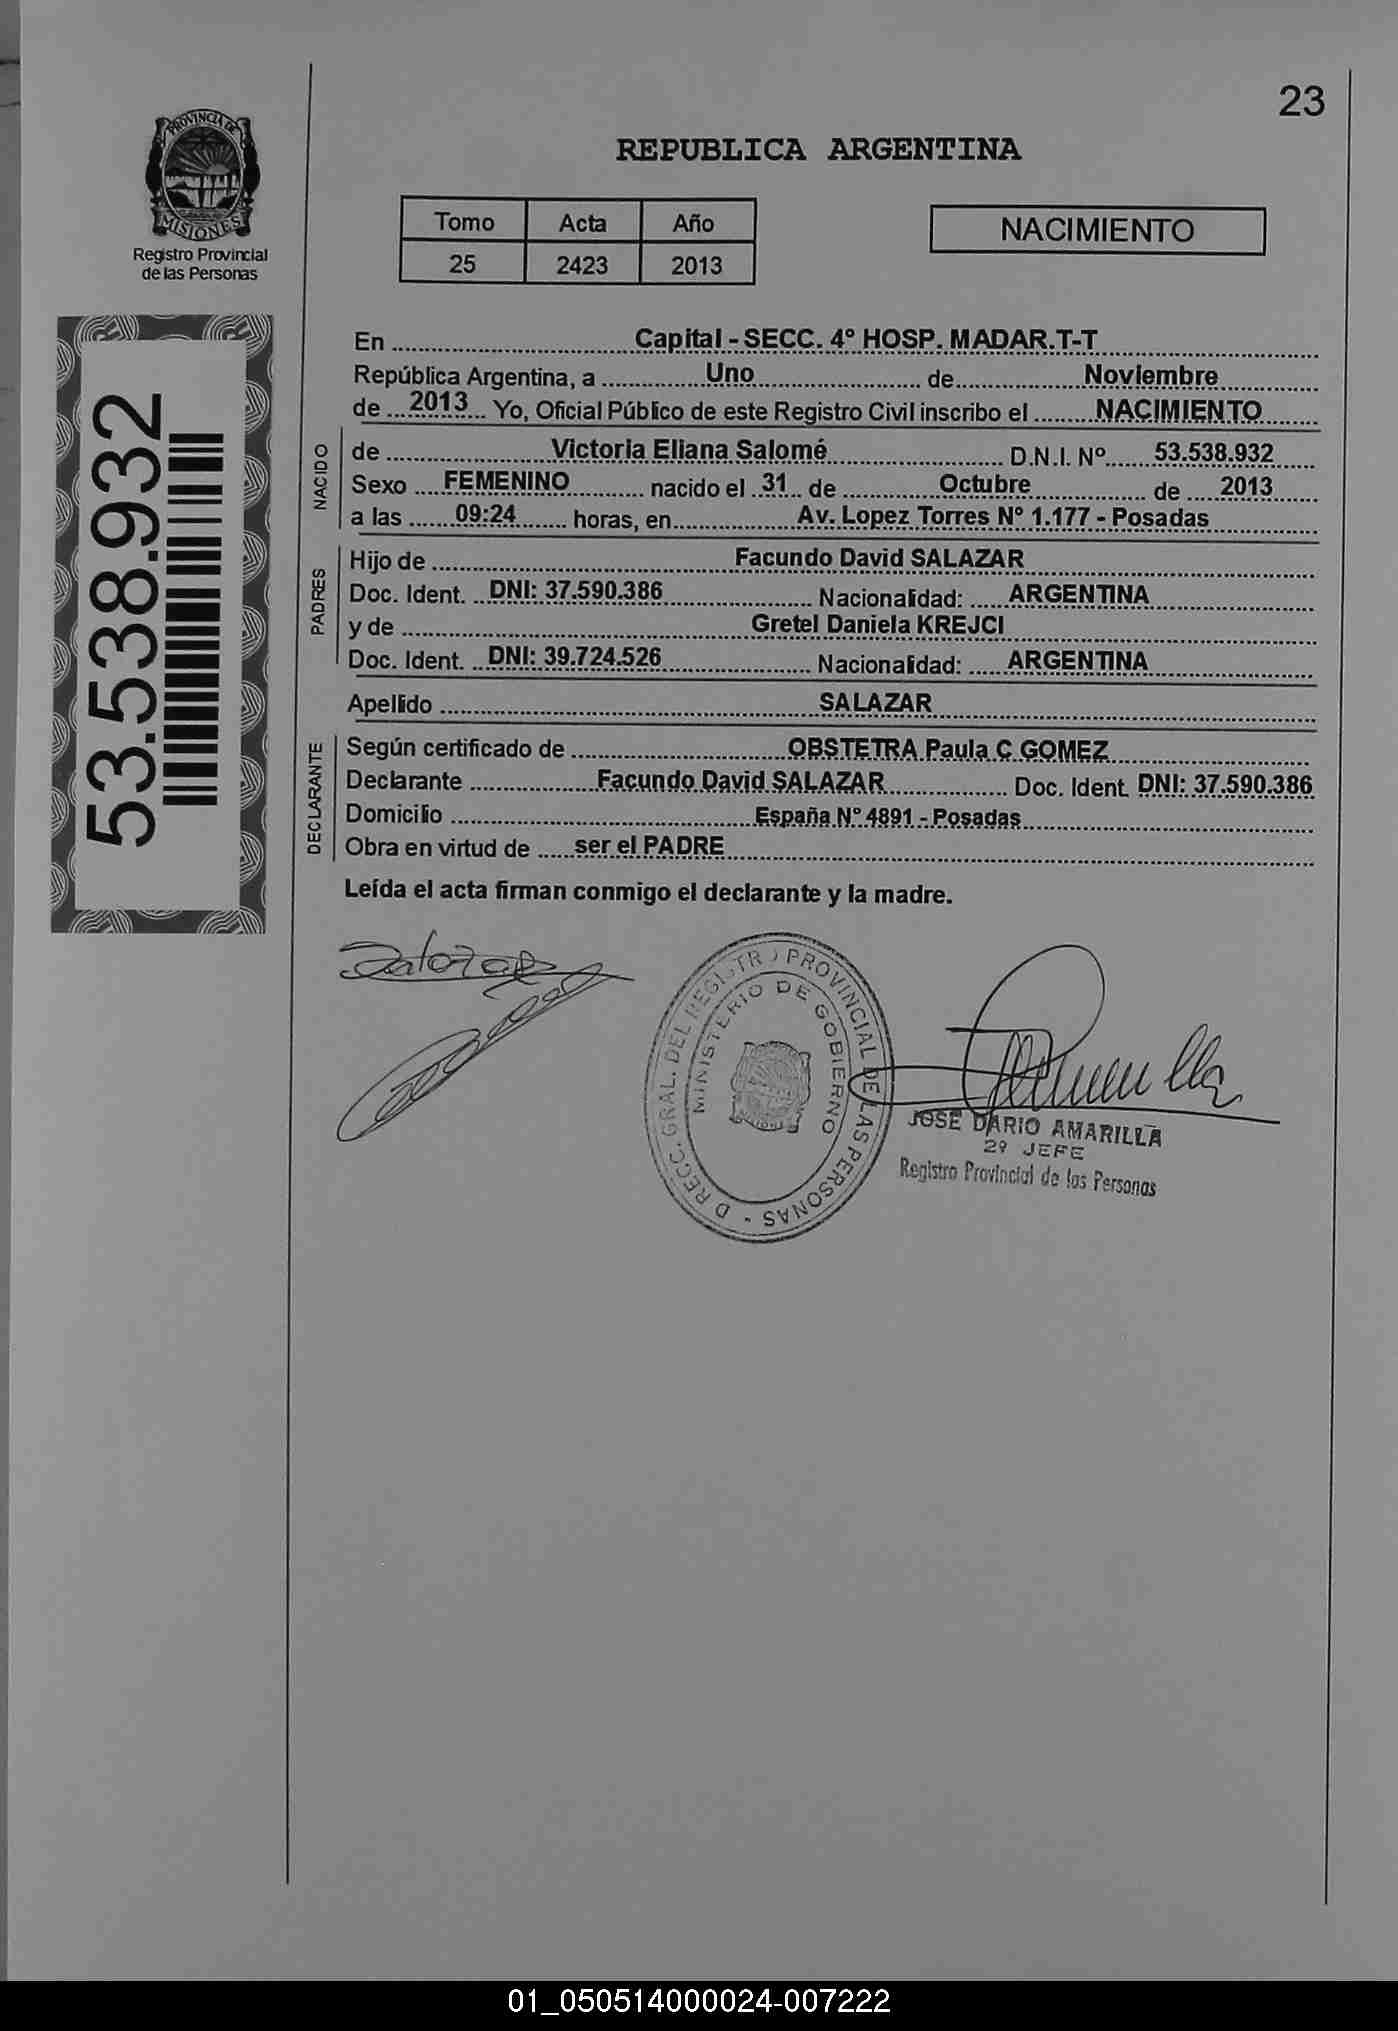 23
PROVINCIA DE
MISIONES
Registro Provincial
de las Personas
REPUBLICA ARGENTINA
Tomo Acta Año
25 2423 2013
NACIMIENTO
53.538.932
En Capital - SECC. 4º HOSP. MADAR.T-T
República Argentina, a Uno de Noviembre
de 2013 Yo, Oficial Público de este Registro Civil inscribo el NACIMIENTO
NACIDO
de Victoria Eliana Salomé D.N.I. Nº 53.538.932
Sexo FEMENINO nacido el 31 de Octubre de 2013
a las 09:24 horas, en Av. Lopez Torres Nº 1.177 - Posadas
PADRES
Hijo de Facundo David SALAZAR
Doc. Ident. DNI: 37.590.386 Nacionalidad: ARGENTINA
y de Gretel Daniela KREJCI
Doc. Ident. DNI: 39.724.526 Nacionalidad: ARGENTINA
Apellido SALAZAR
DECLARANTE
Según certificado de OBSTETRA Paula C GOMEZ
Declarante Facundo David SALAZAR Doc. Ident. DNI: 37.590.386
Domicilio España Nº 4891 - Posadas
Obra en virtud de ser el PADRE
Leída el acta firman conmigo el declarante y la madre.
Salazar
D RECC. GRAL. DEL REGISTRO PROVINCIAL DE LAS PERSONAS -
MINISTERIO DE GOBIERNO
JOSE DARIO AMARILLA
2º JEFE
Registro Provincial de las Personas
01_050514000024-007222